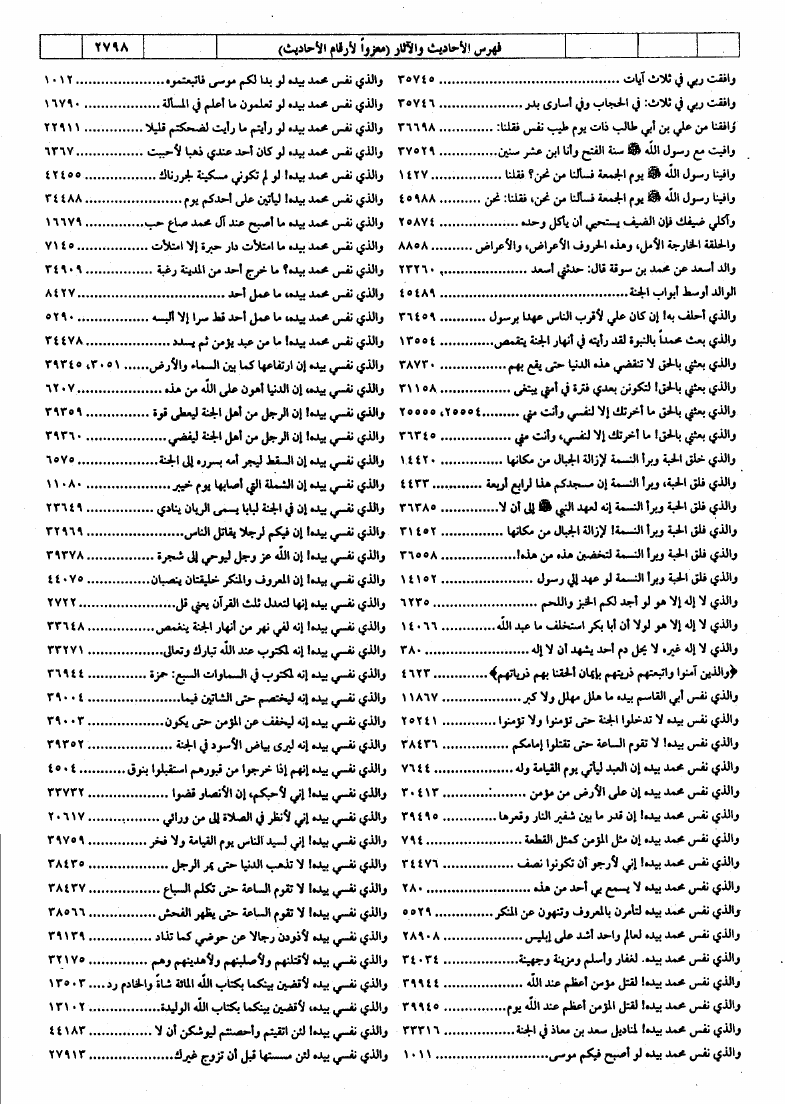 فهرس الأحاديث والآثار (معزواً لأرقام الأحاديث)
٢٧٩٨
وافقت ربي في ثلاث آيات ........ ٣٥٧٤٥
وافقت ربي في ثلاث: في الحجاب وفي أسارى بدر ........ ٣٥٧٤٦
وافقنا من علي بن أبي طالب ذات يوم طيب نفس فقلنا: ........ ٣٦٦٩٨
وافيت مع رسول الله ﷺ سنة الفتح وأنا ابن عشر سنين ........ ٣٧٥٢٩
وافينا رسول الله ﷺ يوم الجمعة فسألنا من نحن؟ فقلنا ........ ١٤٢٧
وافينا رسول الله ﷺ يوم الجمعة فسألنا من نحن، فقلنا: نحن ........ ٤٥٩٨٨
وآكلي ضيفك فإن الضيف يستحيي أن يأكل وحده ........ ٢٥٨٧٤
والحلقة الخارجة الأمل، وهذه الحروف الأعراض، والأعراض ........ ٨٨٥٨
والد أسعد عن محمد بن سوقة قال: حدثني أسعد ........ ٢٣٢٦٠
الوالد أوسط أبواب الجنة ........ ٤٥٤٨٩
والذي أحلف به! إن كان علي لأقرب الناس عهدا برسول ........ ٣٦٤٥٩
والذي بعث محمداً بالنبوة لقد رأيته في أنهار الجنة يتقمص ........ ١٣٥٥٤
والذي بعثني بالحق لا تنقضي هذه الدنيا حتى يقع بهم ........ ٣٨٧٣٠
والذي بعثني بالحق! لتكونن بعدي فترة في أمتي يبتغى ........ ٣١١٥٨
والذي بعثني بالحق ما أخرتك إلا لنفسي وأنت مني ........ ٢٥٥٥٤، ٢٥٥٥٥
والذي بعثني بالحق! ما أخرتك إلا لنفسي، وأنت مني ........ ٣٦٣٤٥
والذي خلق الحبة وبرأ النسمة لإزالة الجبال من مكانها ........ ١٤٤٢٠
والذي فلق الحبة، وبرأ النسمة إن مسجدكم هذا لرابع أربعة ........ ٤٤٣٣
والذي فلق الحبة وبرأ النسمة إنه لعهد النبي ﷺ إلى أن لا ........ ٣٦٣٨٥
والذي فلق الحبة وبرأ النسمة! لإزالة الجبال من مكانها ........ ٣١٤٥٢
والذي فلق الحبة وبرأ النسمة لتخضبن هذه من هذه! ........ ٣٦٥٥٨
والذي فلق الحبة وبرأ النسمة لو عهد إلي رسول ........ ١٤١٥٢
والذي لا إله إلا هو لو أجد لكم الخبز واللحم ........ ٦٢٣٥
والذي لا إله إلا هو لولا أن أبا بكر استخلف ما عبد الله ........ ١٤٠٦٦
والذي لا إله غيره لا يحل دم أحد يشهد أن لا إله ........ ٣٨٠
﴿والذين آمنوا واتبعتهم ذريتهم بإيمان ألحقنا بهم ذرياتهم﴾ ........ ٤٦٢٣
والذي نفس أبي القاسم بيده ما هلل مهلل ولا كبر ........ ١١٨٦٧
والذي نفس محمد بيده لا تدخلوا الجنة حتى تؤمنوا ولا تؤمنوا ........ ٢٥٢٤١
والذي نفس محمد بيده! لا تقوم الساعة حتى تقتلوا إمامكم ........ ٣٨٤٣٦
والذي نفس محمد بيده إن العبد ليأتي يوم القيامة وله ........ ٧٦٤٤
والذي نفس محمد بيده إن على الأرض من مؤمن ........ ٣٠٤١٣
والذي نفس محمد بيده! إن قدر ما بين شفير النار وقعرها ........ ٣٩٤٩٥
والذي نفس محمد بيده إن مثل المؤمن كمثل القطعة ........ ٧٩٤
والذي نفس محمد بيده! إني لأرجو أن تكونوا نصف ........ ٣٤٤٧٦
والذي نفس محمد بيده لا يسمع بي أحد من هذه ........ ٢٨٠
والذي نفس محمد بيده لتأمرن بالمعروف وتنهون عن المنكر ........ ٥٥٢٩
والذي نفس محمد بيده لعالم واحد أشد على إبليس ........ ٢٨٩٠٨
والذي نفس محمد بيده. لغفار وأسلم ومزينة وجهينة ........ ٣٤٠٣٤
والذي نفس محمد بيده! لقتل مؤمن أعظم عند الله ........ ٣٩٩٤٤
والذي نفس محمد بيده! لقتل المؤمن أعظم عند الله يوم ........ ٣٩٩٤٥
والذي نفس محمد بيده! لمناديل سعد بن معاذ في الجنة ........ ٣٣٣١٦
والذي نفس محمد بيده لو أصبح فيكم موسى ........ ١٠١١
والذي نفس محمد بيده لو بدا لكم موسى فاتبعتموه ........ ١٠١٢
والذي نفس محمد بيده لو تعلمون ما أعلم في المسألة ........ ١٦٧٩٠
والذي نفس محمد بيده لو رأيتم ما رأيت لضحكتم قليلا ........ ٢٢٩١١
والذي نفس محمد بيده لو كان أحد عندي ذهبا لأحببت ........ ٦٣٦٧
والذي نفس محمد بيده! لو لم تكوني مسكينة لجررناك ........ ٤٢٤٥٥
والذي نفس محمد بيده! ليأتين على أحدكم يوم ........ ٣٤٤٨٨
والذي نفس محمد بيده ما أصبح عند آل محمد صاع حب ........ ١٦٦٧٩
والذي نفس محمد بيده ما امتلأت دار حبرة إلا امتلأت ........ ٧١٤٥
والذي نفس محمد بيده؟ ما خرج أحد من المدينة رغبة ........ ٣٤٩٠٩
والذي نفس محمد بيده، ما عمل أحد ........ ٨٤٢٧
والذي نفس محمد بيده، ما عمل أحد قط سرا إلا ألبسه ........ ٥٢٩٠
والذي نفس محمد بيده! ما من عبد يؤمن ثم يسدد ........ ٣٤٤٧٨
والذي نفسي بيده إن ارتفاعها كما بين السماء والأرض ...... ٣٠٥١، ٣٩٣٤٥
والذي نفسي بيده، إن الدنيا أهون على الله من هذه ........ ٦٢٠٧
والذي نفسي بيده! إن الرجل من أهل الجنة ليعطى قوة ........ ٣٩٣٥٩
والذي نفسي بيده! إن الرجل من أهل الجنة ليفضي ........ ٣٩٣٦٠
والذي نفسي بيده إن السقط ليجر أمه بسرره إلى الجنة ........ ٦٥٧٥
والذي نفسي بيده إن الشملة التي أصابها يوم خيبر ........ ١١٠٨٠
والذي نفسي بيده إن في الجنة لبابا يسمى الريان ينادي ........ ٢٣٦٤٩
والذي نفسي بيده! إن فيكم لرجلا يقاتل الناس ........ ٣٢٩٦٩
والذي نفسي بيده! إن الله عز وجل ليوحي إلى شجرة ........ ٣٩٣٧٨
والذي نفسي بيده! إن المعروف والمنكر خليقتان ينصبان ........ ٤٤٠٧٥
والذي نفسي بيده إنها لتعدل ثلث القرآن يعني قل ........ ٢٧٢٢
والذي نفسي بيده! إنه لفي نهر من أنهار الجنة ينغمص ........ ٣٣٦٤٨
والذي نفسي بيده! إنه لمكتوب عند الله تبارك وتعالى ........ ٣٣٢٧١
والذي نفسي بيده إنه لمكتوب في السماوات السبع: حمزة ........ ٣٦٩٤٤
والذي نفسي بيده إنه ليختصم حتى الشاتين فيما ........ ٣٩٠٠٤
والذي نفسي بيده إنه ليخفف عن المؤمن حتى يكون ........ ٣٩٠٠٣
والذي نفسي بيده إنه ليرى بياض الأسود في الجنة ........ ٣٩٣٥٢
والذي نفسي بيده إنهم إذا خرجوا من قبورهم استقبلوا بنوق ........ ٤٥٠٤
والذي نفسي بيده! إني لأحبكم، إن الأنصار قضوا ........ ٣٣٧٣٢
والذي نفسي بيده إني لأنظر في الصلاة إلى من ورائي ........ ٢٠٦١٧
والذي نفسي بيده! إني لسيد الناس يوم القيامة ولا فخر ........ ٣٩٧٥٩
والذي نفسي بيده! لا تذهب الدنيا حتى يمر الرجل ........ ٣٨٤٣٥
والذي نفسي بيده! لا تقوم الساعة حتى تكلم السباع ........ ٣٨٤٣٧
والذي نفسي بيده! لا تقوم الساعة حتى يظهر الفحش ........ ٣٨٥٦٦
والذي نفسي بيده لأذودن رجالا عن حوضي كما تذاد ........ ٣٩١٣٩
والذي نفسي بيده لأقتلنهم ولأصلبنهم ولأهدينهم وهم ........ ٣٢١٧٥
والذي نفسي بيده لأقضين بينكما بكتاب الله المائة شاةً والخادم رد .... ١٣٥٠٣
والذي نفسي بيده، لأقضين بينكما بكتاب الله الوليدة ........ ١٣١٠٢
والذي نفسي بيده! لئن اتقيتم وأحصنتم ليوشكن أن لا ........ ٤٤١٨٣
والذي نفسي بيده لئن مسستها قبل أن تزوج غيرك ........ ٢٧٩١٣